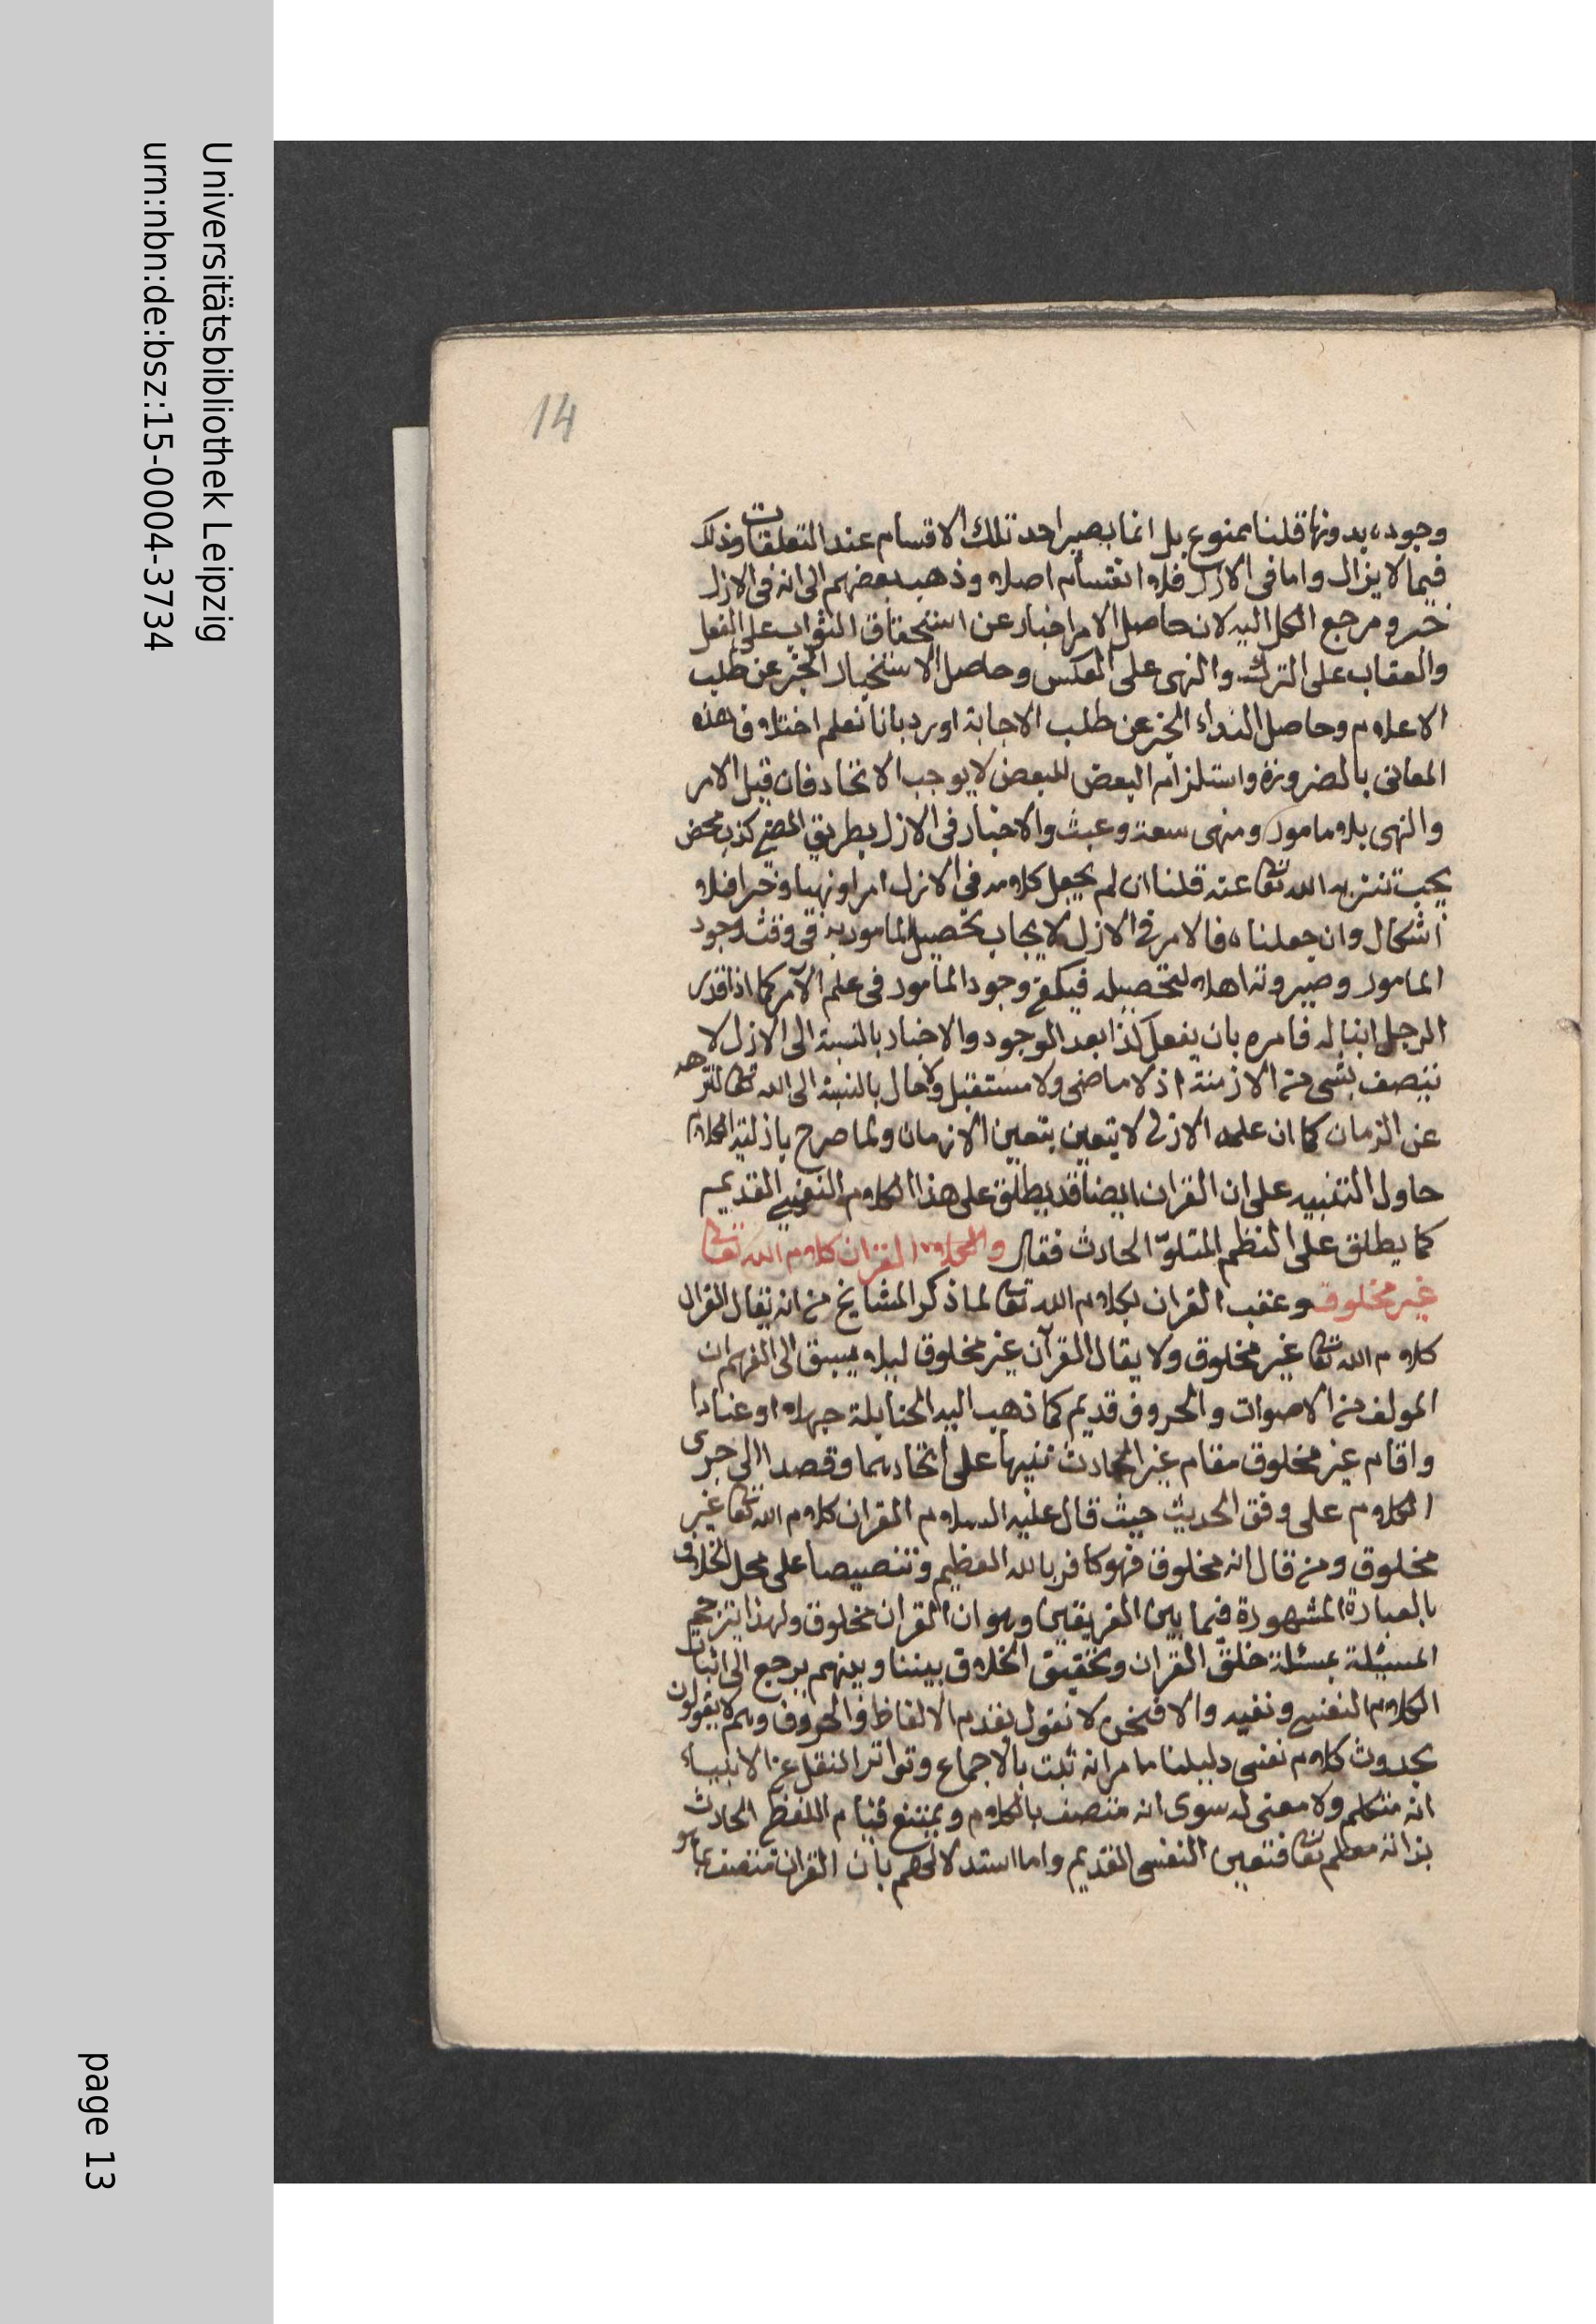 Universitätsbibliothek Leipzig
urn:nbn:de:bsz:15-0004-3734
page 13
14
وجوده بدونها قلنا ممنوع بل انما يصير احد تلك الاقسام عند التعلقات وذلك
فيما لا يزال واما في الازل فلا انقسام اصلا وذهب بعضهم الى انه في الازل
خبر ومرجع الكل اليه لان حاصل الامر اخبار عن استحقاق الثواب على الفعل
والعقاب على الترك والنهى على العكس وحاصل الاستخبار الخبر عن طلب
الاعلام وحاصل النداء الخبر عن طلب الاجابة اورد بانا نعلم اختلاف هذه
المعانى بالضرورة واستلزام البعض للبعض لا يوجب الاتحاد فان قيل الامر
والنهى بلا مامور ومنهى سفه وعبث والاخبار فى الازل بطريق المضى كذب محض
يجب تنزيه الله تعا عنه قلنا ان لم يجعل كلامه في الازل امرا ونهيا وخبرا فلا
اشكال وان جعلناه فالامر في الازل لايجاب تحصيل المامور به في وقت وجود
المامور وصيروته اهلا لتحصيله فيكفى وجود المأمور فى علم الآمر كما اذا قدر
الرجل ابنا له فامره بان يفعل كذا بعد الوجود والاخبار بالنسبة الى الازل لا
تتصف بشى من الازمنة اذ لا ماضى ولا مستقبل ولا حال بالنسبة الى الله تعا لتنزهه
عن الزمان كما ان علمه الازلى لا يتعين بتعين الازمان ولما صرح بازلية الكلام
حاول التنبيه على ان القران ايضا قد يطلق على هذا الكلام النفسى القديم
كما يطلق على النظم المتلوّ الحادث فقال والقران كلام الله تعا
غير مخلوق وعقب القران بكلام الله تعا لما ذكر المشايخ من انه يقال القران
كلام الله تعا غير مخلوق ولا يقال القرآن غير مخلوق ليلا يسبق الى الفهم ان
المولف من الاصوات والحروف قديم كما ذهب اليه الحنابلة جهلا او عنادا
واقام غير مخلوق مقام غير الحادث تنبيها على اتحادهما وقصدا الى جرى
الكلام على وفق الحديث حيث قال عليه السلام القران كلام الله تعا غير
مخلوق ومن قال انه مخلوق فهو كافر بالله العظيم وتنصيصا على محل الخلاف
بالعبارة المشهورة فيما بين الفريقين وهو ان القران مخلوق ولهذا يترجم
المسئلة بمسئلة خلق القران وتحقيق الخلاف بيننا وبينهم يرجع الى اثبات
الكلام النفسى ونفيه والا فنحن لا نقول بقدم الالفاظ والحروف وهم لا يقولون
بحدوث كلام نفسى دليلنا ما مر انه ثبت بالاجماع وتواتر النقل عن الانبياء
انه متكلم ولا معنى له سوى انه متصف بالكلام ويمتنع قيام اللفظ الحادث
بذاته تعا فتعين النفسى القديم واما استدلالهم بان القران متصف بما هو